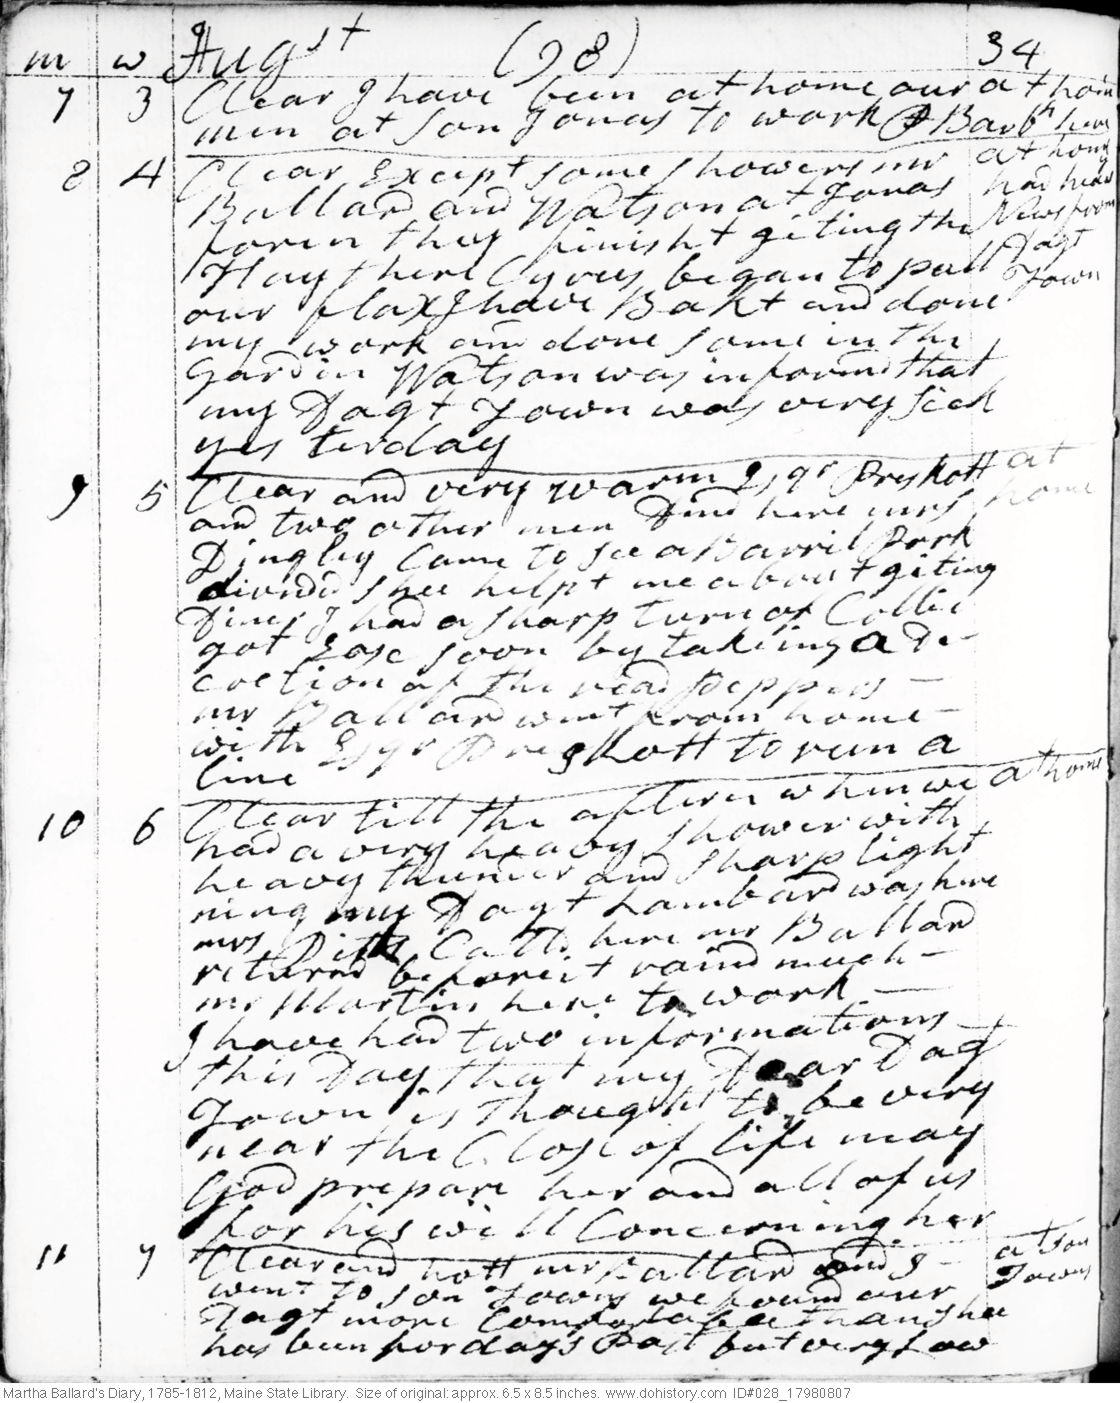 m w Augst (98) 34
7 3 Clear I have been at home our at home
men at son Jonas to work P Barth here
8 4 Clear Except some showers mr at home
Ballard and Watson at Jonas had heard
foren they finisht giting the News from
Hay there Cyrus began to pull Dagt
our flax I have Bakt and done Town
my work and done some in the
Gardin Watson was informd that
my Dagt Town was very sick
yesterday
9 5 Clear and very warm Esqr Preskott at
and two other men Dind here mrs home
Dingley Came to see a Barril Pork
divided shee helpt me about giting
Diner I had a sharp turn of Collic
got Ease soon by taking a De
coction of the read peppers –
mr Ballard went from home –
with Esqr Preskott to run a
line
10 6 Clear till the aftern when we at home
had a very heavy shower with
heavy thunder and sharp light
ning my Dagt Lambard was here
mrs Pitts Calld here mr Ballard
returnd before it raind much –
mr Martin here to work –
I have had two informations
this Day that my Dear Dagt
Town is thought to be very
near the Close of life may
God prepare her and all of us
for his will Concerning her
11 7 Clear and hott mr Ballard and I at son
went to son Towns we found our Towns
Dagt more Comfortable than shee
has been for days Past but very Low
Martha Ballard's Diary, 1785-1812, Maine State Library. Size of original: approx. 6.5 x 8.5 inches. www.dohistory.com ID#028_17980807